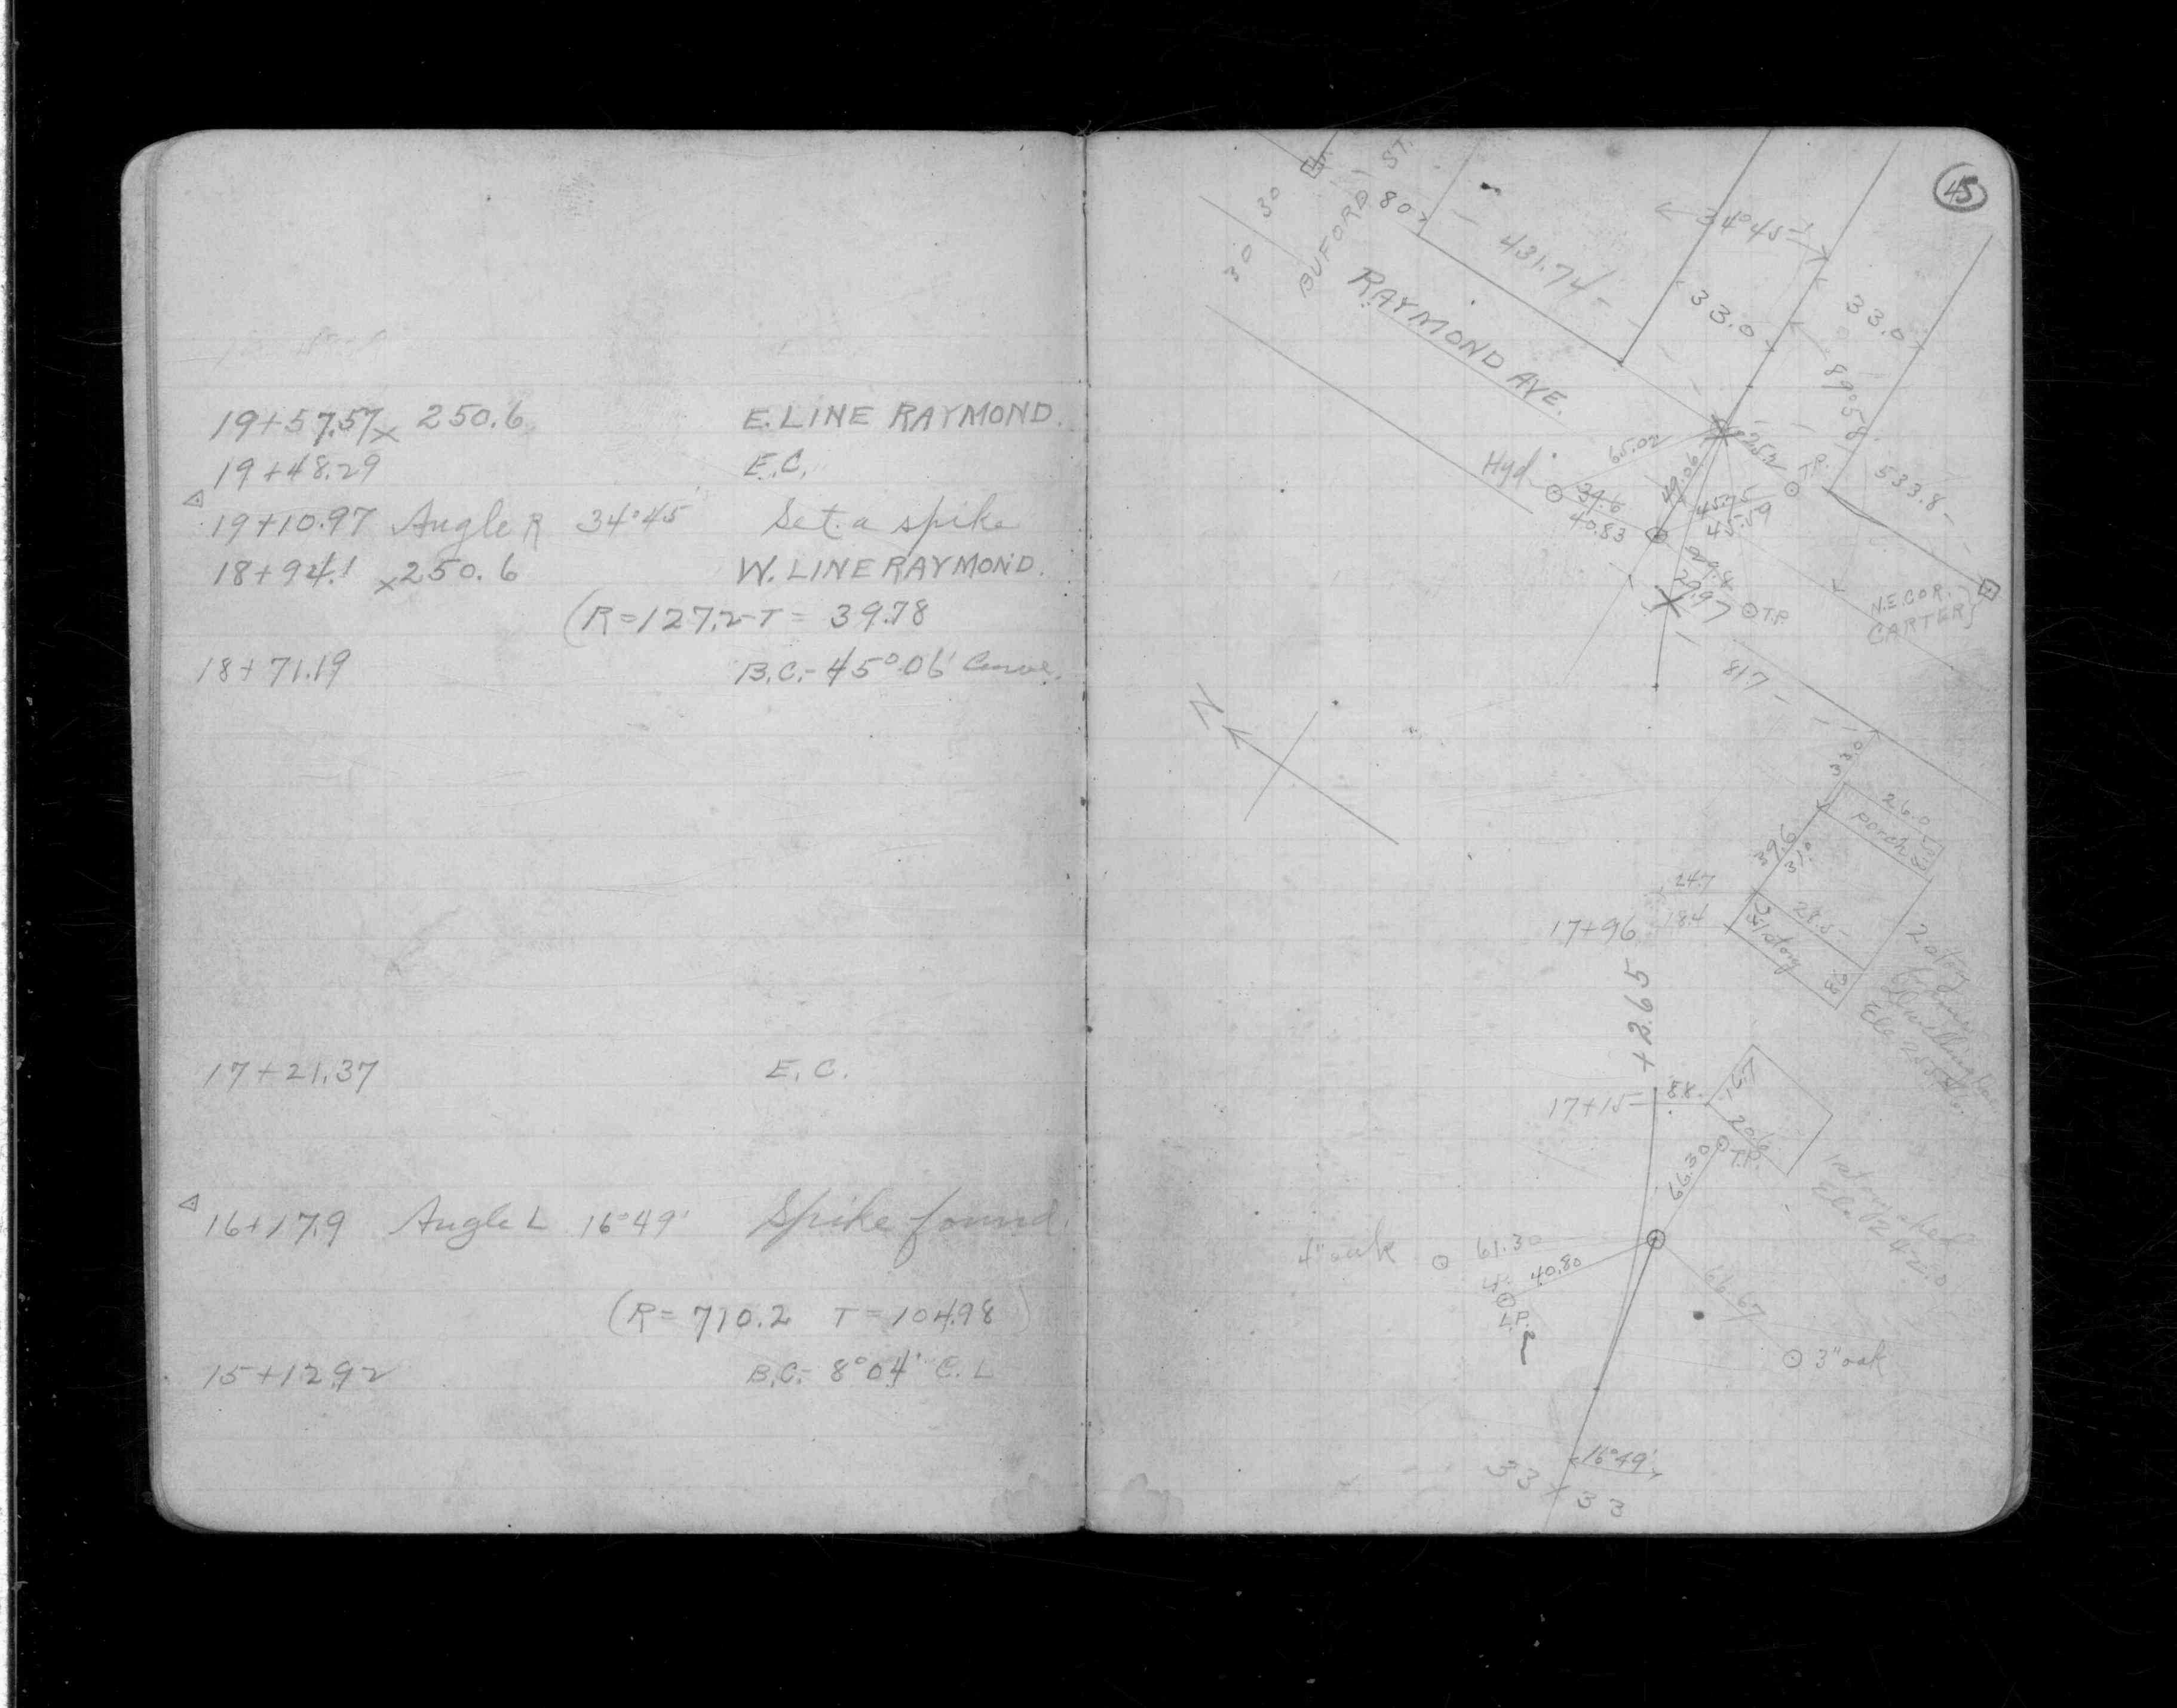 19+57.57 x 250.6 E. LINE RAYMOND.
19+48.29 E.C.
△ 19+10.97 Angle R 34°45' Set a spike
18+94.1 x 250.6 W. LINE RAYMOND.
(R=127.2 - T = 39.78
18+71.19 B.C.- 45°06' Curve.
17+21.37 E.C.
△ 16+17.9 Angle L 16°49' Spike found.
(R= 710.2 T = 104.98)
15+12.92 B.C.- 8°04' C. L
45
30
30
BUFORD ST.
80
431.74
34°45'
33.0
33.0
RAYMOND AVE.
89°58'
533.8
Hyd.
65.02
25.2
T.P.
39.6
40.83
49.06
45.75
45.59
29.8
29.97
T.P.
N.E. COR.
CARTER}
N
817
33.0
26.0
porch
39.6
31.0
24.7
17+96 18.4
28.5
1 story
2 story
Frame
Dwelling
+265
17+15 8.8
16.7
20.6
T.P.
66.30
1 story shed
4" oak 61.30
40.80
L.P.
66.67
3" oak
16°49'
33 33